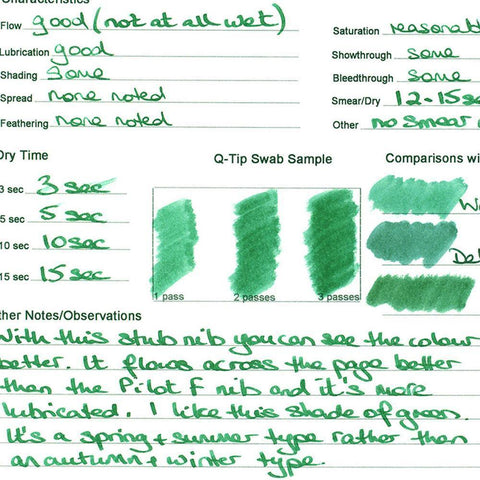 Characteristics
Flow good (not at all wet)
Lubrication good
Shading Some
Spread none noted
Feathering none noted
Saturation
Showthrough some
Bleedthrough some
Smear/Dry 12-15
Other no smear
Dry Time
3 sec 3 sec
5 sec 5 sec
10 sec 10 sec
15 sec 15 sec
Q-Tip Swab Sample
1 pass
2 passes
3 passes
Comparisons
Other Notes/Observations
With this stub nib you can see the colour
better. It flows across the page better
than the Pilot F nib and it's more
lubricated. I like this shade of green.
It's a spring + summer type rather than
an autumn + winter type.